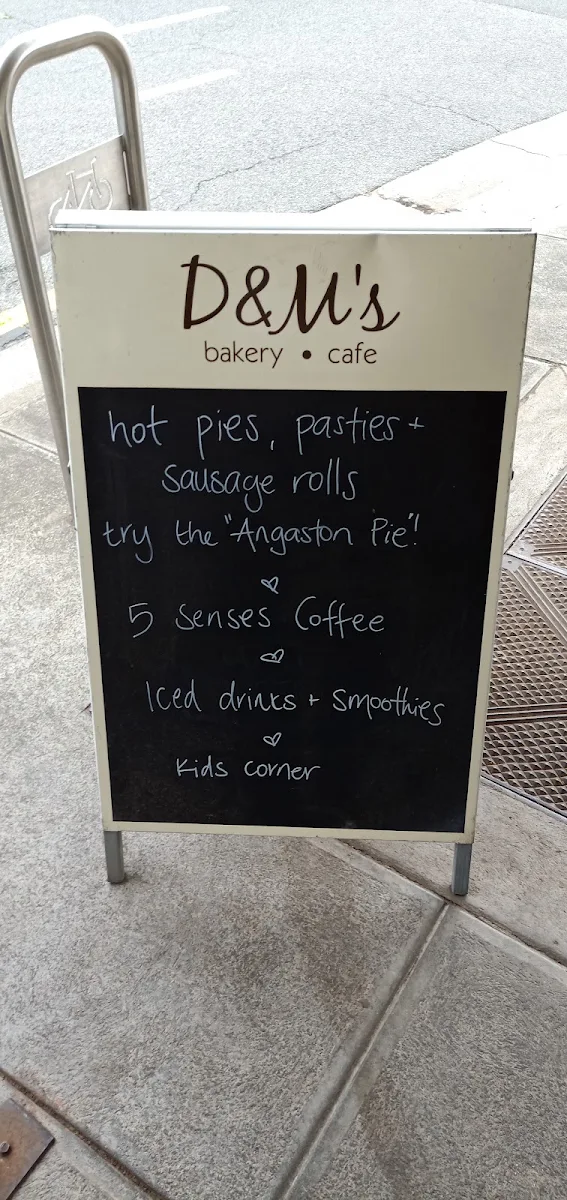 D&M's
bakery • cafe
hot pies, pasties +
sausage rolls
try the "Angaston Pie"!
5 Senses Coffee
Iced drinks + Smoothies
Kids corner